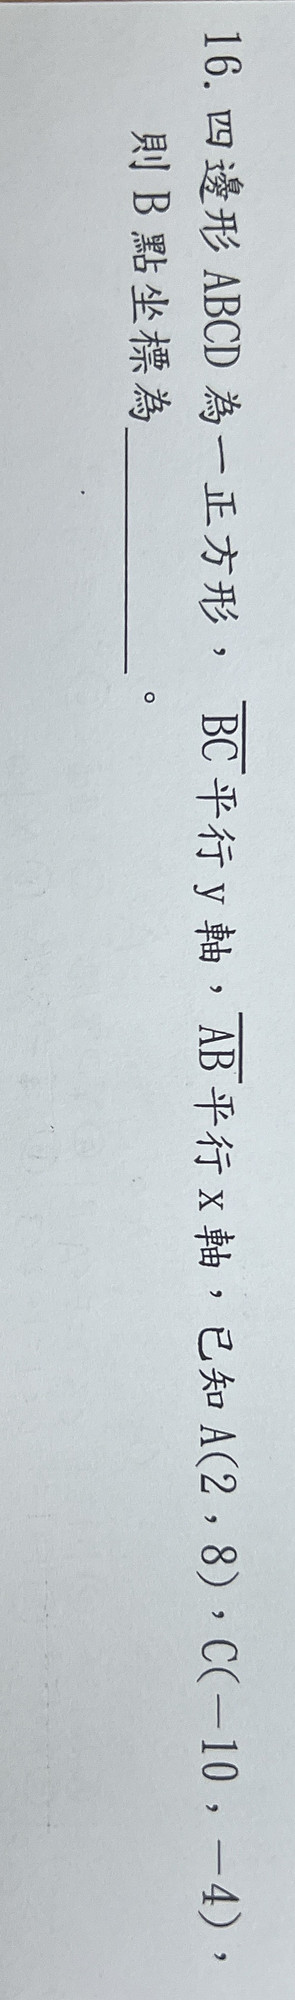 16. 四邊形 ABCD 為一正方形，BC 平行 y 軸，AB 平行 x 軸，已知 A(2，8)，C(－10，－4)，
則 B 點坐標為＿＿＿＿＿＿。